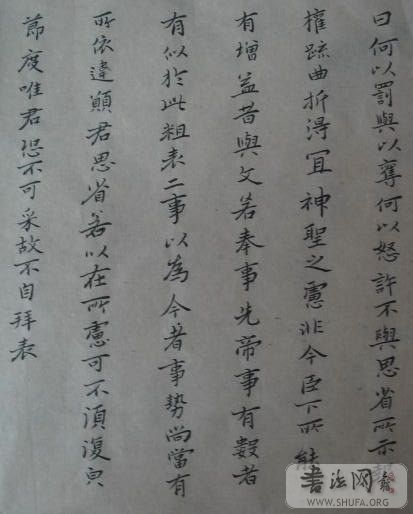 曰何以罰與以奪何以怒許不與思省所示報
權疏曲折得冝神聖之慮非今臣下所能
有增益昔與文若奉事先帝事有數者
有似於此粗表二事以為今者事勢尚當有
所依違願君思省若以在所慮可不須復皃
節度唯君恐不可采故不自拜表
書法网
WWW.SHUFA.ORG